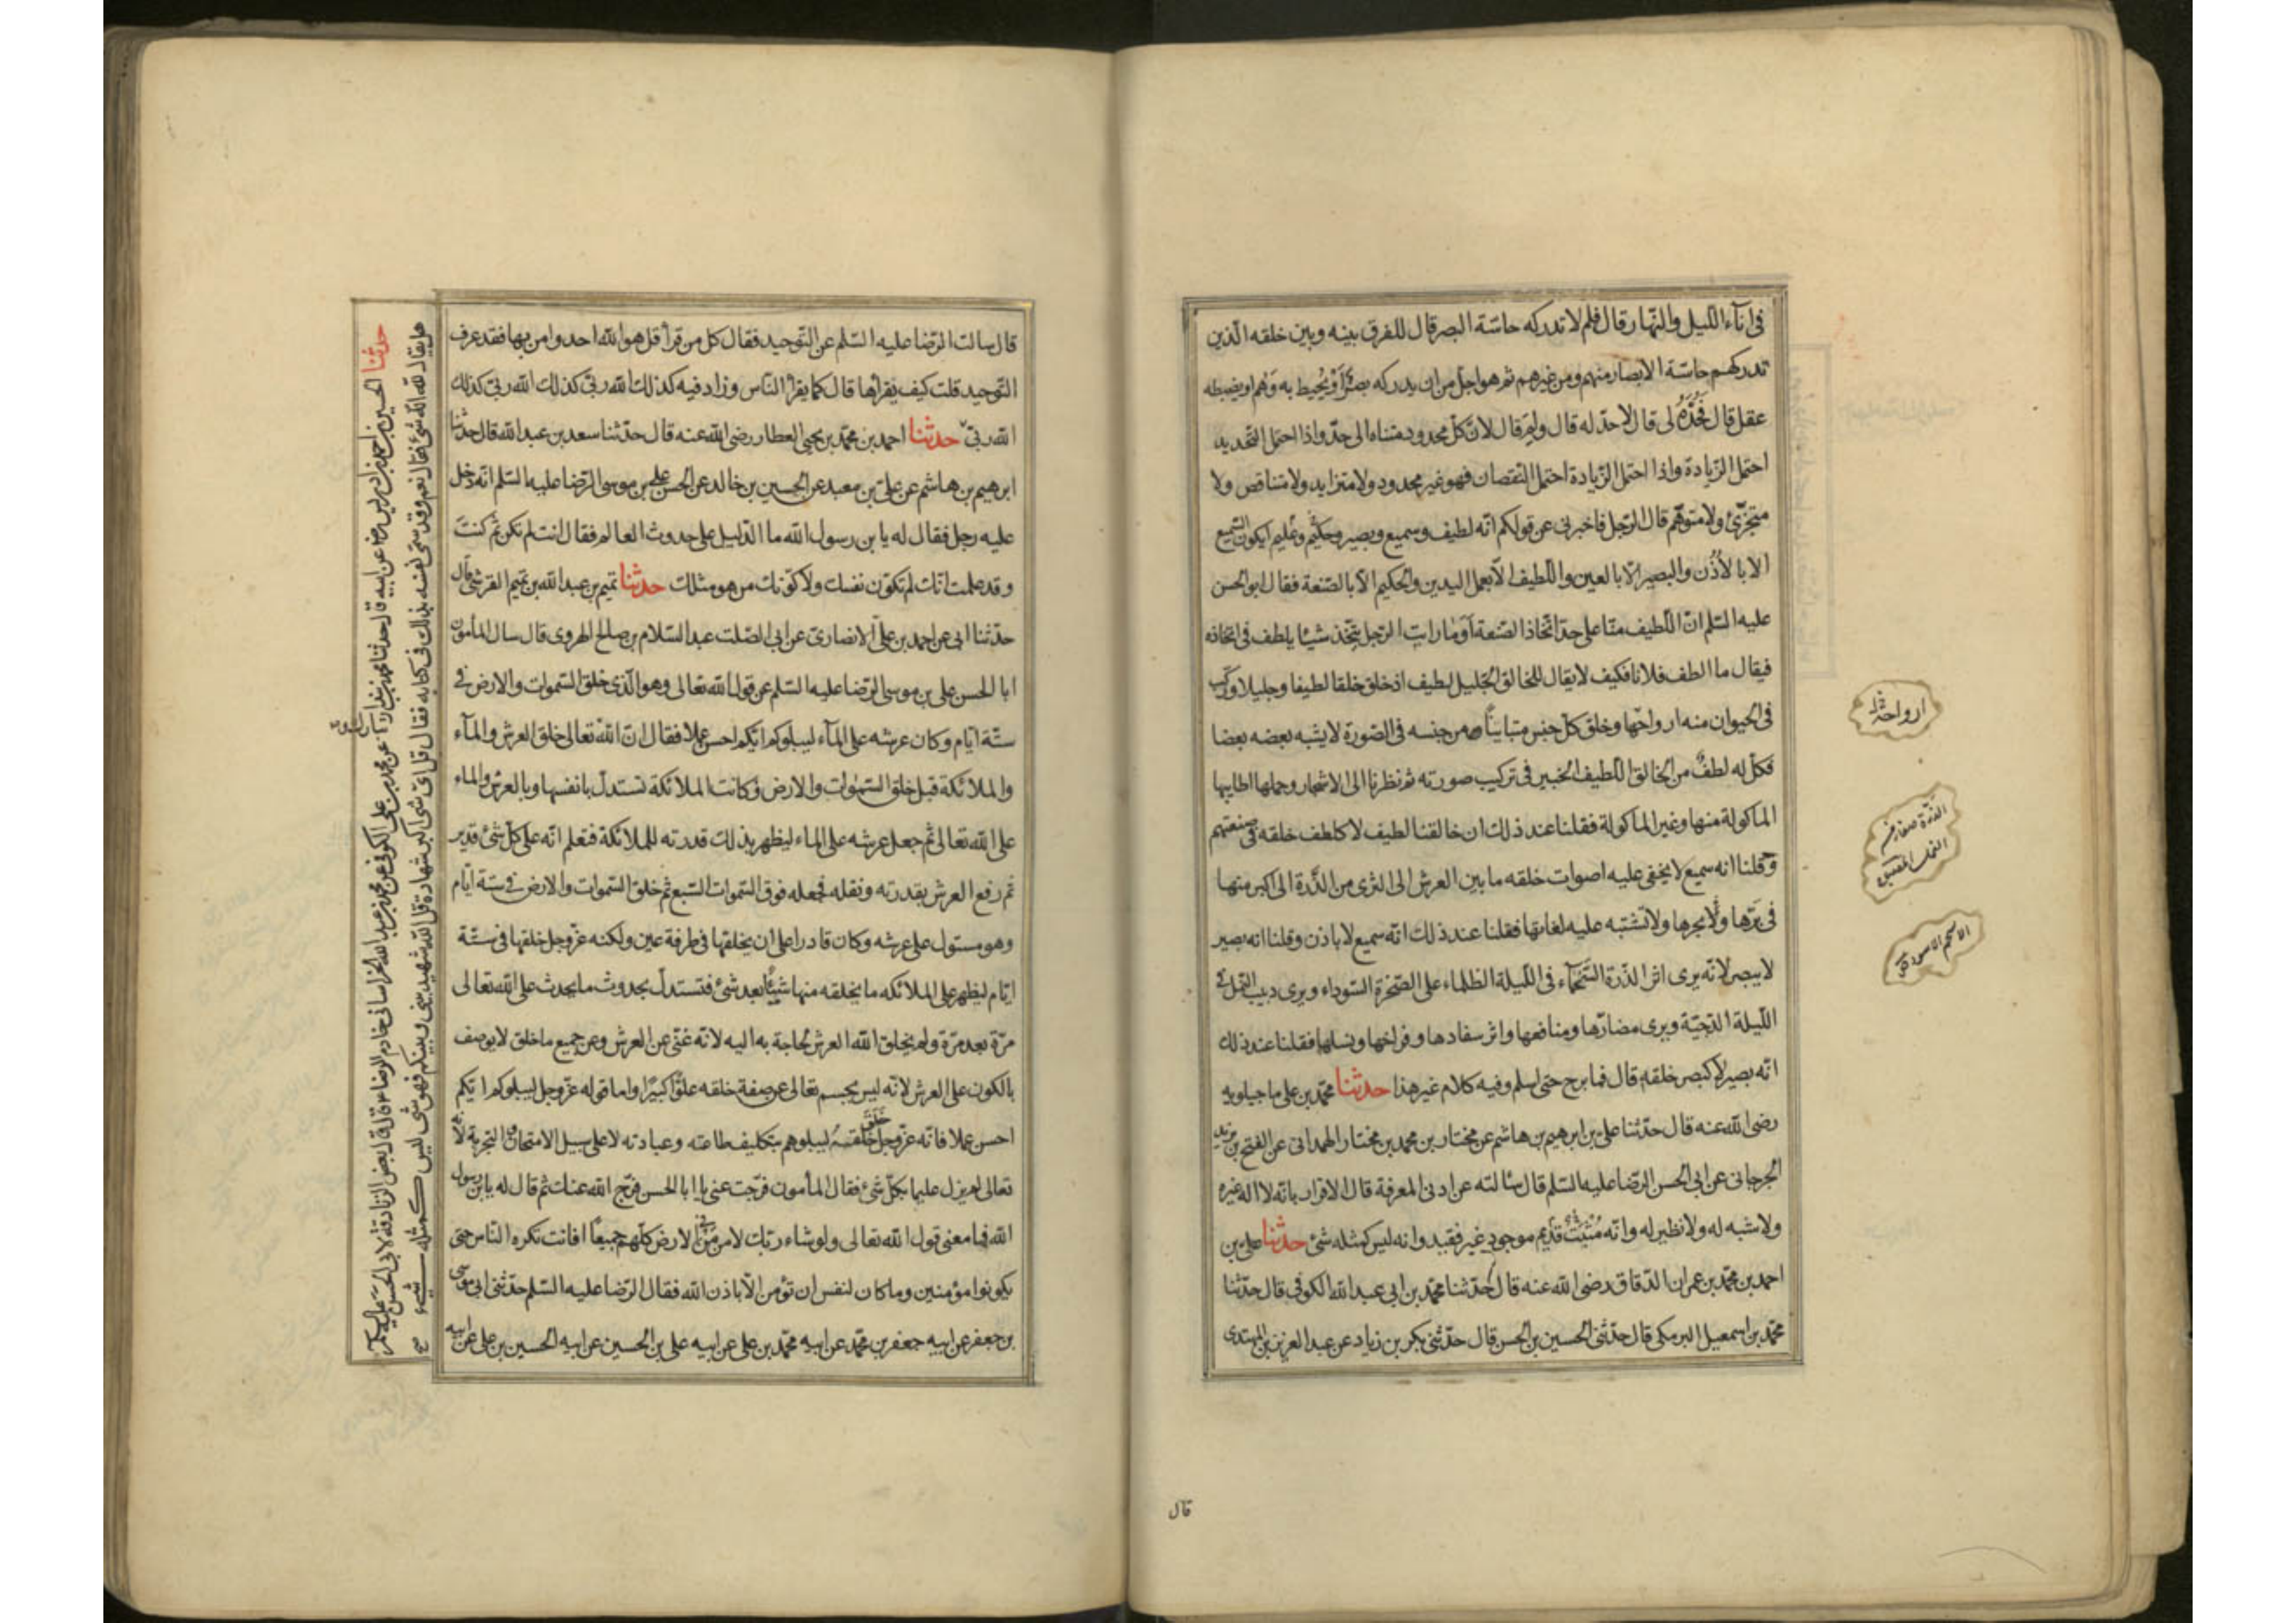 فى اناء الليل والنهار قال فلم لا تدركه حاسة البصر قال للفرق بينه وبين خلقه الذين
تدركهم حاسة الابصار منهم ومن غيرهم ثم هو اجل من ان يدركه بصر او يحيط به وهم او يضبطه
عقل قال فحده لى قال لا حد له قال ولم قال لان كل محدود متناه الى حد واذا احتمل التحديد
احتمل الزيادة واذا احتمل الزيادة احتمل النقصان فهو غير محدود ولا متزايد ولا متناقص ولا
متجزئ ولا متوهم قال الرجل فاخبرنى عن قولكم انه لطيف وسميع وبصير وحكيم وعليم ايكون السميع
الا بالاذن والبصير الا بالعين واللطيف الا بعمل اليدين والحكيم الا بالصنعة فقال ابو الحسن
عليه السلم ان اللطيف منا على حد اتخاذ الصنعة او ما رايت الرجل يتخذ شيئا يلطف فى اتخاذه
فيقال ما الطف فلانا فكيف لا يقال للخالق الجليل لطيف اذ خلق خلقا لطيفا وجليلا وركب
فى الحيوان منه ارواحها وخلق كل جنس متباينا من جنسه فى الصورة لا يشبه بعضه بعضا
فكل له لطف من الخالق اللطيف الخبير فى تركيب صورته ثم نظرنا الى الاشجار وحملها اطايبها
الماكولة منها وغير الماكولة فقلنا عند ذلك ان خالقنا لطيف لا كلطف خلقه فى صنعتهم
وقلنا انه سميع لا يخفى عليه اصوات خلقه ما بين العرش الى الثرى من الذرة الى اكبر منها
فى برها وبحرها ولا تشتبه عليه لغاتها فقلنا عند ذلك انه سميع لا باذن وقلنا انه بصير
لا ببصر لانه يرى اثر الذرة السحماء فى الليلة الظلماء على الصخرة السوداء ويرى دبيب النمل فى
الليلة الدجية ويرى مضارها ومنافعها واثر سفادها وفراخها ونسلها فقلنا عند ذلك
انه بصير لا كبصر خلقه قال فما برح حتى اسلم وفيه كلام غير هذا حدثنا محمد بن على ماجيلويه
رضى الله عنه قال حدثنا على بن ابرهيم بن هاشم عن مختار بن محمد بن مختار الهمدانى عن الفتح بن يزيد
الجرجانى عن ابى الحسن الرضا عليه السلم قال سالته عن ادنى المعرفة قال الاقرار بانه لا اله غيره
ولا شبه له ولا نظير له وانه مثبت قديم موجود غير فقيد وانه ليس كمثله شئ حدثنا على بن
احمد بن محمد بن عمران الدقاق رضى الله عنه قال حدثنا محمد بن ابى عبد الله الكوفى قال حدثنا
محمد بن اسمعيل البرمكى قال حدثنى الحسين بن الحسن قال حدثنى بكر بن زياد عن عبد العزيز بن المهتدى
ارواحها
الذرة صغار
النمل
الاسحم الاسود
قال
قال سالت الرضا عليه السلم عن التوحيد فقال كل من قرأ قل هو الله احد وامن بها فقد عرف
التوحيد قلت كيف يقرأها قال كما يقرأ الناس وزاد فيه كذلك الله ربى كذلك الله ربى كذلك
الله ربى حدثنا احمد بن محمد بن يحيى العطار رضى الله عنه قال حدثنا سعد بن عبد الله قال حدثنا
ابرهيم بن هاشم عن على بن معبد عن الحسين بن خالد عن الحسن على بن موسى الرضا عليه السلم انه دخل
عليه رجل فقال له يا بن رسول الله ما الدليل على حدوث العالم فقال انت لم تكن ثم كنت
وقد علمت انك لم تكون نفسك ولا كونك من هو مثلك حدثنا تميم بن عبد الله بن تميم القرشى قال
حدثنا ابى عن احمد بن على الانصارى عن ابى الصلت عبد السلام بن صالح الهروى قال سال المأمون
ابا الحسن على بن موسى الرضا عليه السلم عن قول الله تعالى وهو الذى خلق السموات والارض فى
ستة ايام وكان عرشه على المآء ليبلوكم ايكم احسن عملا فقال ان الله تعالى خلق العرش والمآء
والملائكة قبل خلق السموات والارض وكانت الملائكة تستدل بانفسها وبالعرش والماء
على الله تعالى ثم جعل عرشه على الماء ليظهر بذلك قدرته للملائكة فتعلم انه على كل شئ قدير
ثم رفع العرش بقدرته ونقله فجعله فوق السموات السبع ثم خلق السموات والارض فى ستة ايام
وهو مستول على عرشه وكان قادرا على ان يخلقها فى طرفة عين ولكنه عز وجل خلقها فى ستة
ايام ليظهر على الملائكه ما يخلقه منها شيئا بعد شئ فتستدل بحدوث ما يحدث على الله تعالى
مرة بعد مرة ولم يخلق الله العرش لحاجة به اليه لانه غنى عن العرش وعن جميع ما خلق لا يوصف
بالكون على العرش لانه ليس بجسم تعالى عن صفة خلقه علوا كبيرا واما قوله عز وجل ليبلوكم ايكم
احسن عملا فانه عز وجل خلق خلقه ليبلوهم بتكليف طاعته وعبادته لا على سبيل الامتحان والتجربة لانه
تعالى لم يزل عليما بكل شئ فقال المأمون فرجت عنى يا ابا الحسن فرج الله عنك ثم قال له يا بن رسول
الله فما معنى قول الله تعالى ولو شاء ربك لامن من فى الارض كلهم جميعا افانت تكره الناس حتى
يكونوا مؤمنين وما كان لنفس ان تؤمن الا باذن الله فقال الرضا عليه السلم حدثنى ابى موسى
بن جعفر عن ابيه جعفر بن محمد عن ابيه محمد بن على عن ابيه على بن الحسين عن ابيه الحسين بن على عن ابيه
حدثنا الحسين بن احمد بن ادريس عن ابيه قال حدثنا محمد بن بندار عن محمد بن على الكوفى عن محمد بن عبد الله الخراسانى خادم الرضا قال قال بعض الزنادقة لابى الحسن عليه السلم
هل يقال لله انه شئ فقال نعم وقد سمى نفسه بذلك فى كتابه فقال قل اى شئ اكبر شهادة قل الله شهيد بينى وبينكم فهو شئ ليس كمثله شئ